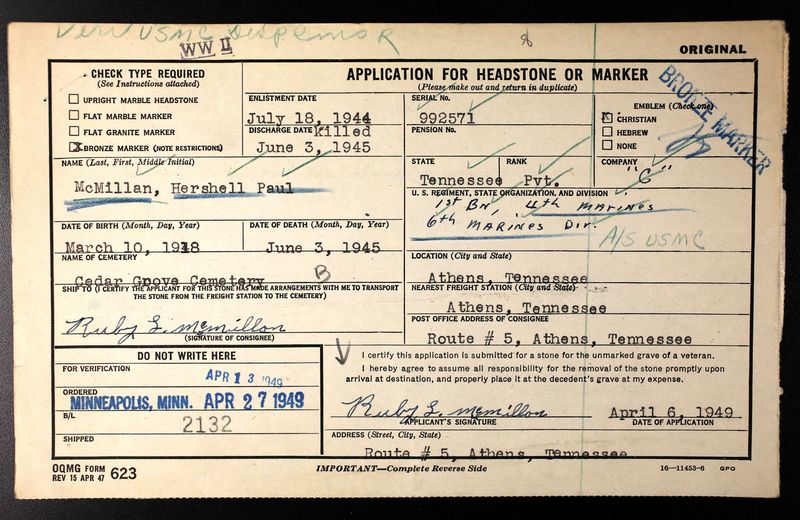 Veri. USMC
WW II
ORIGINAL
CHECK TYPE REQUIRED
(See Instructions attached)
UPRIGHT MARBLE HEADSTONE
FLAT MARBLE MARKER
FLAT GRANITE MARKER
X BRONZE MARKER (NOTE RESTRICTIONS)
APPLICATION FOR HEADSTONE OR MARKER
(Please make out and return in duplicate)
ENLISTMENT DATE
July 18, 1944
DISCHARGE DATE Killed
June 3, 1945
SERIAL No.
992571
PENSION No.
EMBLEM (Check one)
X CHRISTIAN
HEBREW
NONE
BRONZE MARKER
NAME (Last, First, Middle Initial)
McMillan, Hershell Paul
STATE
Tennessee
RANK
Pvt.
COMPANY
"C"
U. S. REGIMENT, STATE ORGANIZATION, AND DIVISION
1st Bn, 4th MARINES
6th MARINES Div.
A/S USMC
DATE OF BIRTH (Month, Day, Year)
March 10, 1918
DATE OF DEATH (Month, Day, Year)
June 3, 1945
NAME OF CEMETERY
Cedar Grove Cemetery
B
LOCATION (City and State)
Athens, Tennessee
SHIP TO (I CERTIFY THE APPLICANT FOR THIS STONE HAS MADE ARRANGEMENTS WITH ME TO TRANSPORT
THE STONE FROM THE FREIGHT STATION TO THE CEMETERY)
NEAREST FREIGHT STATION (City and State)
Athens, Tennessee
Ruby L. McMillon
(SIGNATURE OF CONSIGNEE)
POST OFFICE ADDRESS OF CONSIGNEE
Route # 5, Athens, Tennessee
DO NOT WRITE HERE
FOR VERIFICATION
APR 13 1949
ORDERED
MINNEAPOLIS, MINN. APR 27 1949
B/L
2132
SHIPPED
I certify this application is submitted for a stone for the unmarked grave of a veteran.
I hereby agree to assume all responsibility for the removal of the stone promptly upon
arrival at destination, and properly place it at the decedent's grave at my expense.
Ruby L. McMillon
APPLICANT'S SIGNATURE
April 6, 1949
DATE OF APPLICATION
ADDRESS (Street, City, State)
Route # 5, Athens, Tennessee
OQMG FORM
REV 15 APR 47 623
IMPORTANT—Complete Reverse Side
16—11453-6 GPO